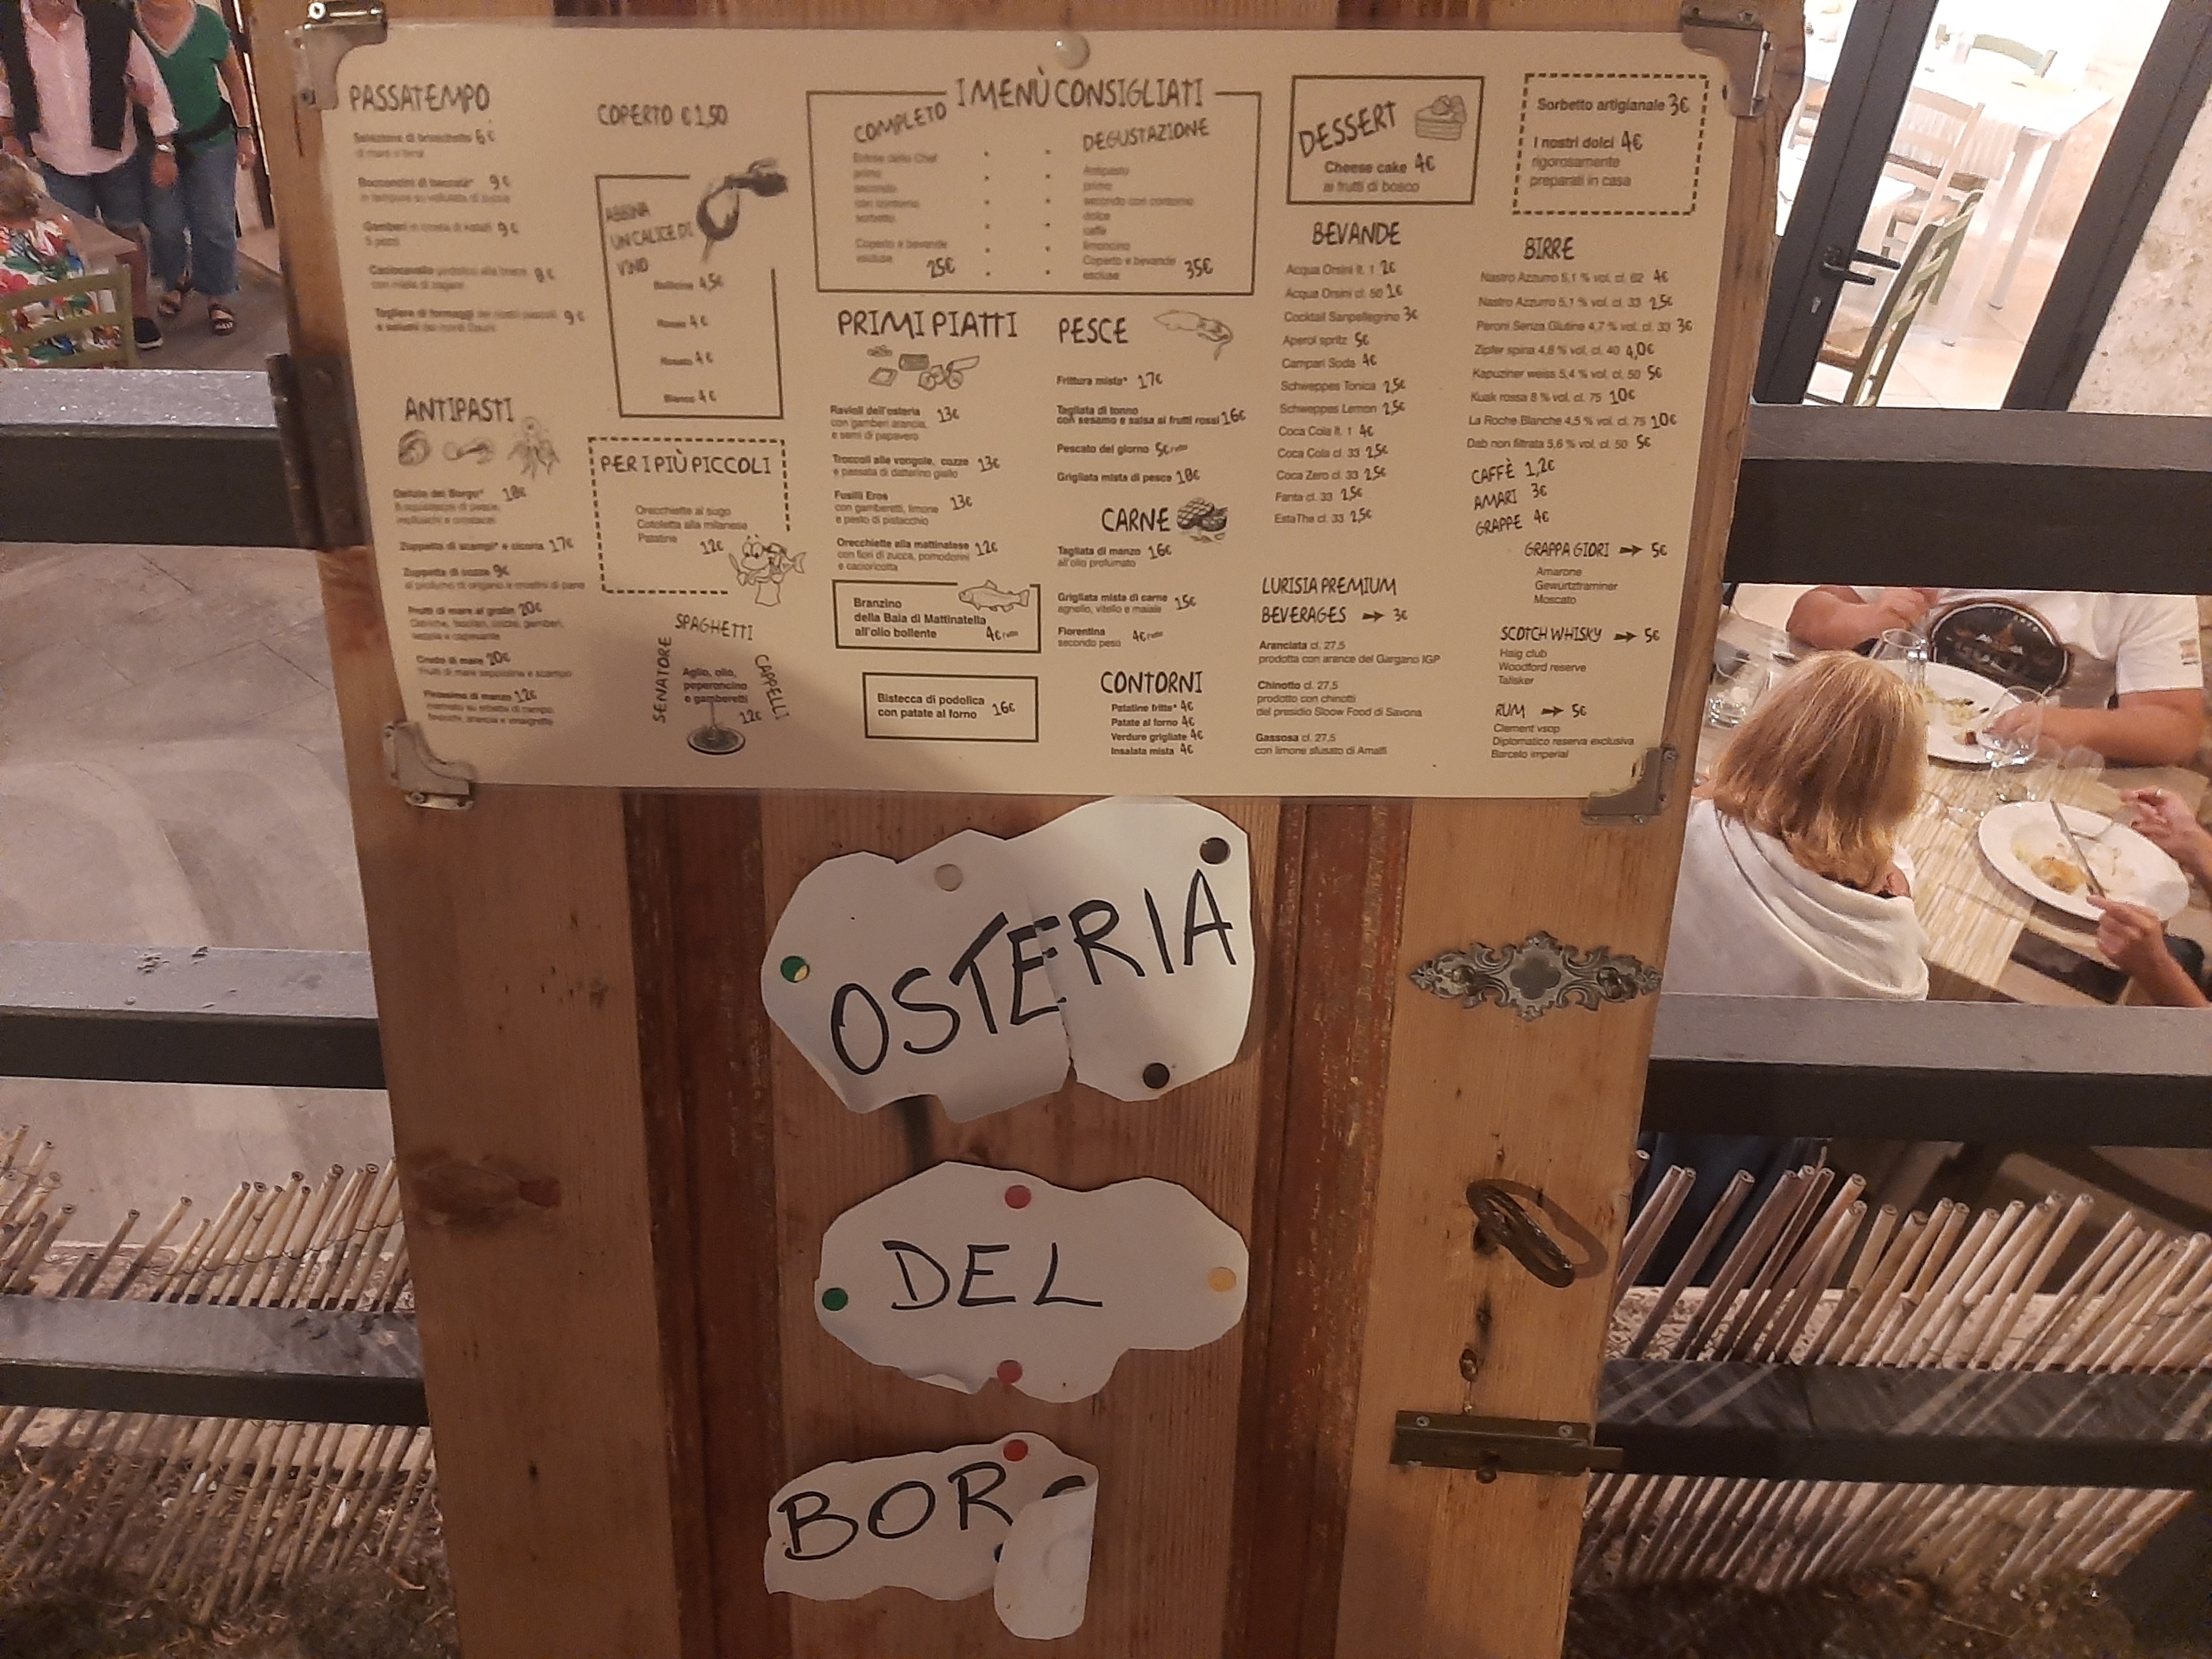 PASSATEMPO
Selezione di bruschette 6€
di mare e terra
Bocconcini di baccalà* 9€
in tempura su vellutata di zucca
Gamberi in crosta di kataifi 9€
5 pezzi
Caciocavallo podolico alla brace 8€
con miele di zagara
Tagliere di formaggi dei nostri pascoli 9€
e salumi dei monti Dauni
ANTIPASTI
Delizie del Borgo* 18€
molluschi e crostacei
Zuppetta di scampi* e cicoria 17€
Zuppetta di cozze 9€
al profumo di origano e crostini di pane
Frutti di mare al gratin 20€
Crudo di mare 20€
12€
COPERTO € 1,50
ABBINA
UN CALICE DI
VINO
Bollicine 4,5€
Rosso 4€
Rosato 4€
Bianco 4€
PER I PIÙ PICCOLI
Orecchiette al sugo
Cotoletta alla milanese
Patatine
12€
SPAGHETTI
SENATORE
CAPPELLI
Aglio, olio,
peperoncino
e gamberetti
12€
I MENÙ CONSIGLIATI
COMPLETO
Entrée dello Chef
primo
secondo
con contorno
sorbetto
Coperto e bevande
escluse
25€
DEGUSTAZIONE
Antipasto
primo
secondo con contorno
dolce
caffè
limoncino
Coperto e bevande
escluse
35€
PRIMI PIATTI
Ravioli dell'osteria 13€
con gamberi arancia,
e semi di papavero
Troccoli alle vongole, cozze 13€
e passata di datterino giallo
Fusilli Eros 13€
con gamberetti, limone
e pesto di pistacchio
Orecchiette alla mattinatese 12€
con fiori di zucca, pomodorini
e cacioricotta
Branzino
della Baia di Mattinatella
all'olio bollente 4€/l'etto
Bistecca di podolica
con patate al forno 16€
PESCE
Frittura mista* 17€
Tagliata di tonno
con sesamo e salsa ai frutti rossi 16€
Pescato del giorno 5€/l'etto
Grigliata mista di pesce 18€
CARNE
Tagliata di manzo 16€
all'olio profumato
Grigliata mista di carne 15€
agnello, vitello e maiale
Fiorentina 4€/l'etto
secondo peso
CONTORNI
Patatine fritte* 4€
Patate al forno 4€
Verdure grigliate 4€
Insalata mista 4€
DESSERT
Cheese cake 4€
ai frutti di bosco
Sorbetto artigianale 3€
I nostri dolci 4€
rigorosamente
preparati in casa
BEVANDE
Acqua Orsini lt. 1 2€
Acqua Orsini cl. 50 1€
Cocktail Sanpellegrino 3€
Aperol spritz 5€
Campari Soda 4€
Schweppes Tonica 2,5€
Schweppes Lemon 2,5€
Coca Cola lt. 1 4€
Coca Cola cl. 33 2,5€
Coca Zero cl. 33 2,5€
Fanta cl. 33 2,5€
EstaThe cl. 33 2,5€
LURISIA PREMIUM
BEVERAGES → 3€
Aranciata cl. 27,5
prodotta con arance del Gargano IGP
Chinotto cl. 27,5
prodotto con chinotti
del presidio Sloow Food di Savona
Gassosa cl. 27,5
con limone sfusato di Amalfi
BIRRE
Nastro Azzurro 5,1 % vol. cl. 62 4€
Nastro Azzurro 5,1 % vol. cl. 33 2,5€
Peroni Senza Glutine 4,7 % vol. cl. 33 3€
Zipfer spina 4,8 % vol. cl. 40 4,0€
Kapuziner weiss 5,4 % vol. cl. 50 5€
Kuak rossa 8 % vol. cl. 75 10€
La Roche Blanche 4,5 % vol. cl. 75 10€
Dab non filtrata 5,6 % vol. cl. 50 5€
CAFFÈ 1,2€
AMARI 3€
GRAPPE 4€
GRAPPA GIORI → 5€
Amarone
Gewurtztraminer
Moscato
SCOTCH WHISKY → 5€
Haig club
Woodford reserve
Talisker
RUM → 5€
Clement vsop
Diplomatico reserva exclusiva
Barcelo imperial
OSTERIA
DEL
BOR